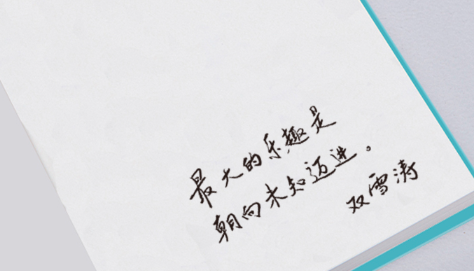 最大的乐趣是
朝向未知迈进。
双雪涛